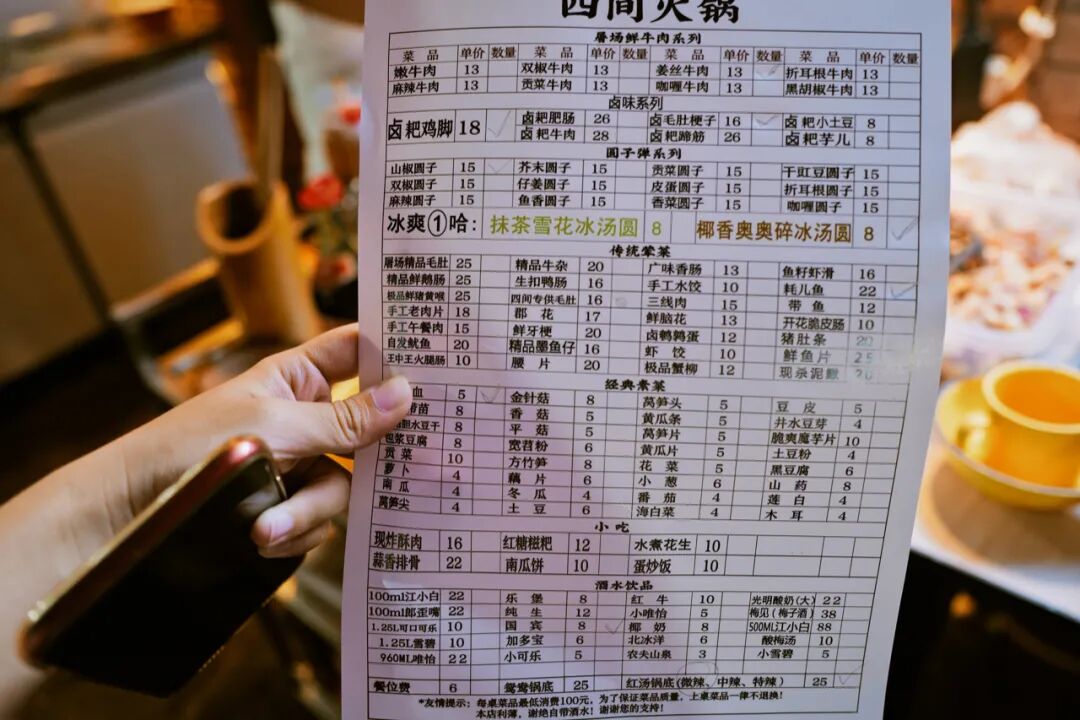 四间火锅
屠场鲜牛肉系列
菜品 单价 数量 菜品 单价 数量 菜品 单价 数量 菜品 单价 数量
嫩牛肉 13 双椒牛肉 13 姜丝牛肉 13 折耳根牛肉 13
麻辣牛肉 13 贡菜牛肉 13 咖喱牛肉 13 黑胡椒牛肉 13
卤味系列
卤粑鸡脚 18 卤粑肥肠 26 卤毛肚梗子 16 卤粑小土豆 8
卤粑牛肉 28 卤粑蹄筋 26 卤粑芋儿 8
圆子弹系列
山椒圆子 15 芥末圆子 15 贡菜圆子 15 干豇豆圆子 15
双椒圆子 15 仔姜圆子 15 皮蛋圆子 15 折耳根圆子 15
麻辣圆子 15 鱼香圆子 15 香菜圆子 15 咖喱圆子 15
冰爽①哈: 抹茶雪花冰汤圆 8 椰香奥奥碎冰汤圆 8
传统荤菜
屠场精品毛肚 25 精品牛杂 20 广味香肠 13 鱼籽虾滑 16
精品鲜鹅肠 25 生扣鸭肠 16 手工水饺 10 耗儿鱼 22
极品鲜猪黄喉 25 四间专供毛肚 16 三线肉 15 带鱼 12
手工老肉片 18 郡花 17 鲜脑花 13 开花脆皮肠 10
手工午餐肉 15 鲜牙梗 20 卤鹌鹑蛋 12 猪肚条 20
自发鱿鱼 20 精品墨鱼仔 16 虾饺 10 鲜鱼片 25
王中王火腿肠 10 腰片 20 极品蟹柳 12 现杀泥鳅 20
经典素菜
血 5 金针菇 8 莴笋头 5 豆皮 5
苗 8 香菇 5 黄瓜条 5 井水豆芽 4
胆水豆干 8 平菇 5 莴笋片 5 脆爽魔芋片 10
包浆豆腐 8 宽苕粉 6 黄瓜片 5 土豆粉 4
贡菜 10 方竹笋 8 花菜 5 黑豆腐 6
萝卜 4 藕片 6 小葱 6 山药 8
南瓜 4 冬瓜 4 番茄 4 莲白 4
莴笋尖 4 土豆 6 海白菜 4 木耳 4
小吃
现炸酥肉 16 红糖糍粑 12 水煮花生 10
蒜香排骨 22 南瓜饼 10 蛋炒饭 10
酒水饮品
100ml江小白 22 乐堡 8 红牛 10 光明酸奶(大) 22
100ml郎歪嘴 22 纯生 12 小唯怡 5 梅见(梅子酒) 38
1.25L可口可乐 10 国宾 8 椰奶 8 500ML江小白 88
1.25L雪碧 10 加多宝 6 北冰洋 6 酸梅汤 10
960ML唯怡 22 小可乐 5 农夫山泉 3 小雪碧 5
餐位费 6 鸳鸯锅底 25 红汤锅底(微辣、中辣、特辣) 25
*友情提示: 每桌菜品最低消费100元,为了保证菜品质量,上桌菜品一律不退换!
本店利薄,谢绝自带酒水!谢谢您的支持!